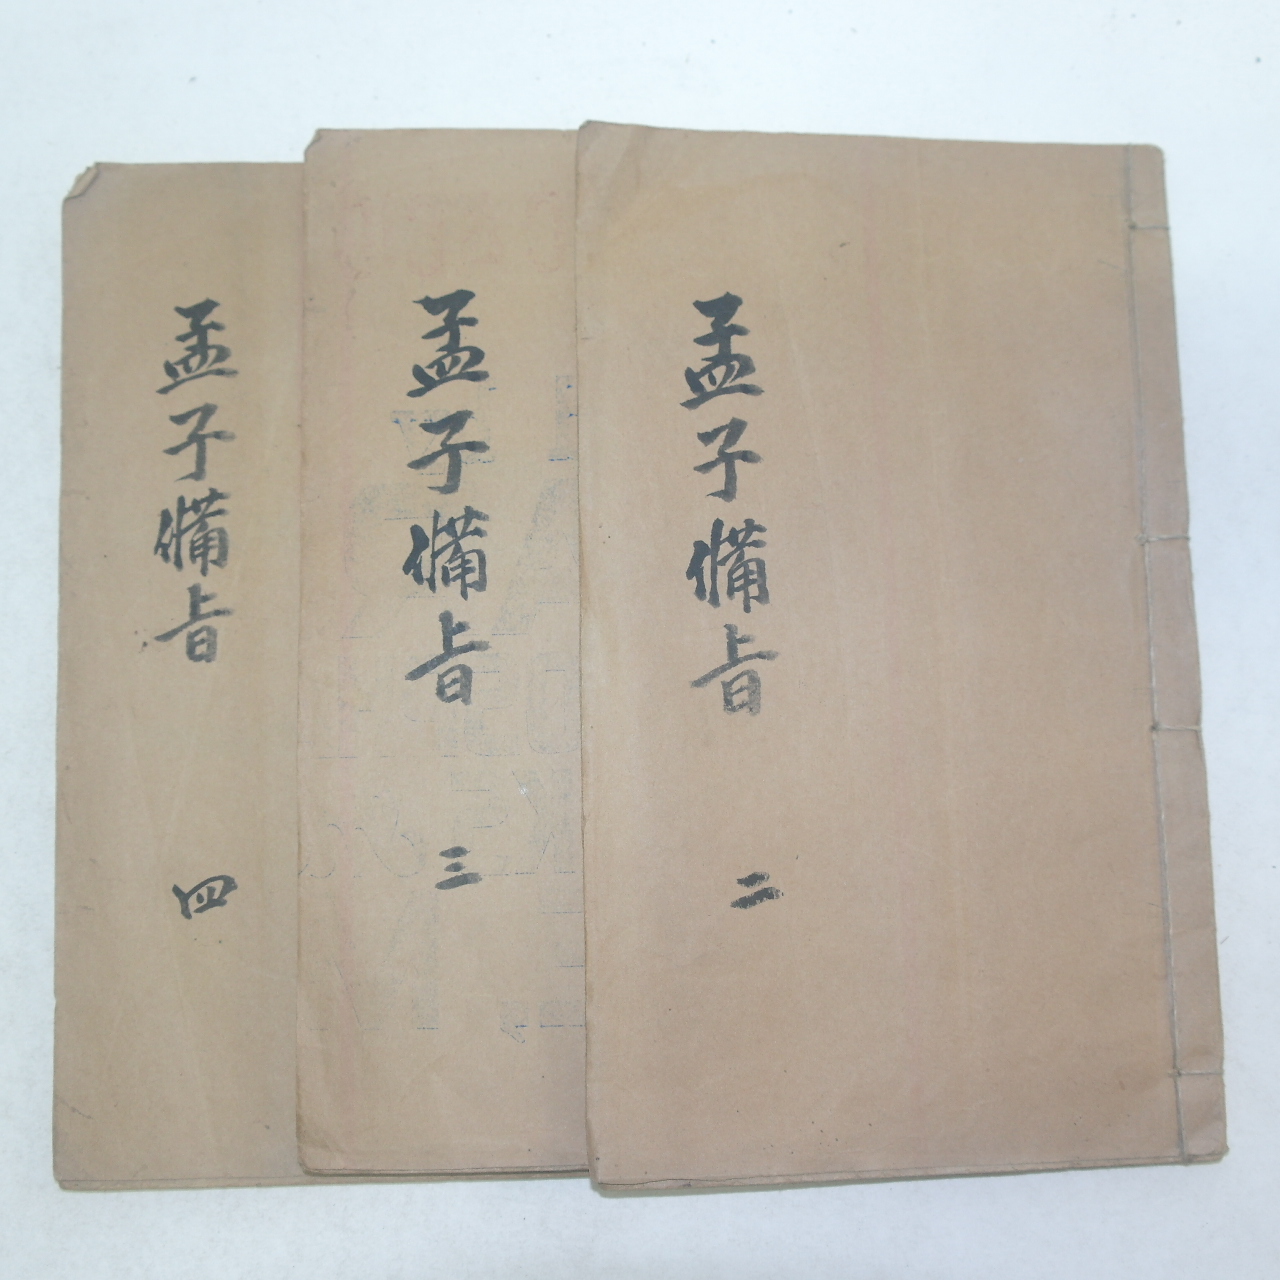 孟子備旨
二
孟子備旨
三
孟子備旨
四